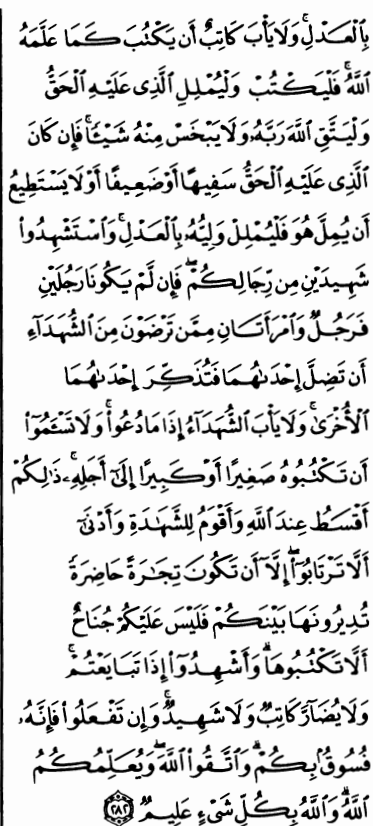 بِٱلْعَدْلِۚ وَلَا يَأْبَ كَاتِبٌ أَن يَكْتُبَ كَمَا عَلَّمَهُ
ٱللَّهُۚ فَلْيَكْتُبْ وَلْيُمْلِلِ ٱلَّذِى عَلَيْهِ ٱلْحَقُّ
وَلْيَتَّقِ ٱللَّهَ رَبَّهُۥ وَلَا يَبْخَسْ مِنْهُ شَيْـًٔاۚ فَإِن كَانَ
ٱلَّذِى عَلَيْهِ ٱلْحَقُّ سَفِيهًا أَوْ ضَعِيفًا أَوْ لَا يَسْتَطِيعُ
أَن يُمِلَّ هُوَ فَلْيُمْلِلْ وَلِيُّهُۥ بِٱلْعَدْلِۚ وَٱسْتَشْهِدُوا۟
شَهِيدَيْنِ مِن رِّجَالِكُمْۖ فَإِن لَّمْ يَكُونَا رَجُلَيْنِ
فَرَجُلٌ وَٱمْرَأَتَانِ مِمَّن تَرْضَوْنَ مِنَ ٱلشُّهَدَآءِ
أَن تَضِلَّ إِحْدَىٰهُمَا فَتُذَكِّرَ إِحْدَىٰهُمَا
ٱلْأُخْرَىٰۚ وَلَا يَأْبَ ٱلشُّهَدَآءُ إِذَا مَا دُعُوا۟ۚ وَلَا تَسْـَٔمُوٓا۟
أَن تَكْتُبُوهُ صَغِيرًا أَوْ كَبِيرًا إِلَىٰٓ أَجَلِهِۦۚ ذَٰلِكُمْ
أَقْسَطُ عِندَ ٱللَّهِ وَأَقْوَمُ لِلشَّهَٰدَةِ وَأَدْنَىٰٓ
أَلَّا تَرْتَابُوٓا۟ۖ إِلَّآ أَن تَكُونَ تِجَٰرَةً حَاضِرَةً
تُدِيرُونَهَا بَيْنَكُمْ فَلَيْسَ عَلَيْكُمْ جُنَاحٌ
أَلَّا تَكْتُبُوهَاۗ وَأَشْهِدُوٓا۟ إِذَا تَبَايَعْتُمْۚ
وَلَا يُضَآرَّ كَاتِبٌ وَلَا شَهِيدٌۚ وَإِن تَفْعَلُوا۟ فَإِنَّهُۥ
فُسُوقٌۢ بِكُمْۗ وَٱتَّقُوا۟ ٱللَّهَۖ وَيُعَلِّمُكُمُ
ٱللَّهُۗ وَٱللَّهُ بِكُلِّ شَىْءٍ عَلِيمٌ ٢٨٢